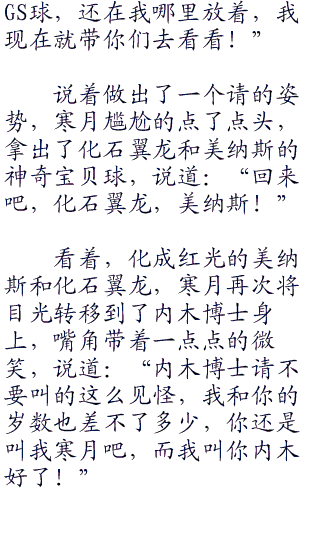 GS球，还在我哪里放着，我
现在就带你们去看看！”
说着做出了一个请的姿
势，寒月尴尬的点了点头，
拿出了化石翼龙和美纳斯的
神奇宝贝球，说道：“回来
吧，化石翼龙，美纳斯！”
看着，化成红光的美纳
斯和化石翼龙，寒月再次将
目光转移到了内木博士身
上，嘴角带着一点点的微
笑，说道：“内木博士请不
要叫的这么见怪，我和你的
岁数也差不了多少，你还是
叫我寒月吧，而我叫你内木
好了！”